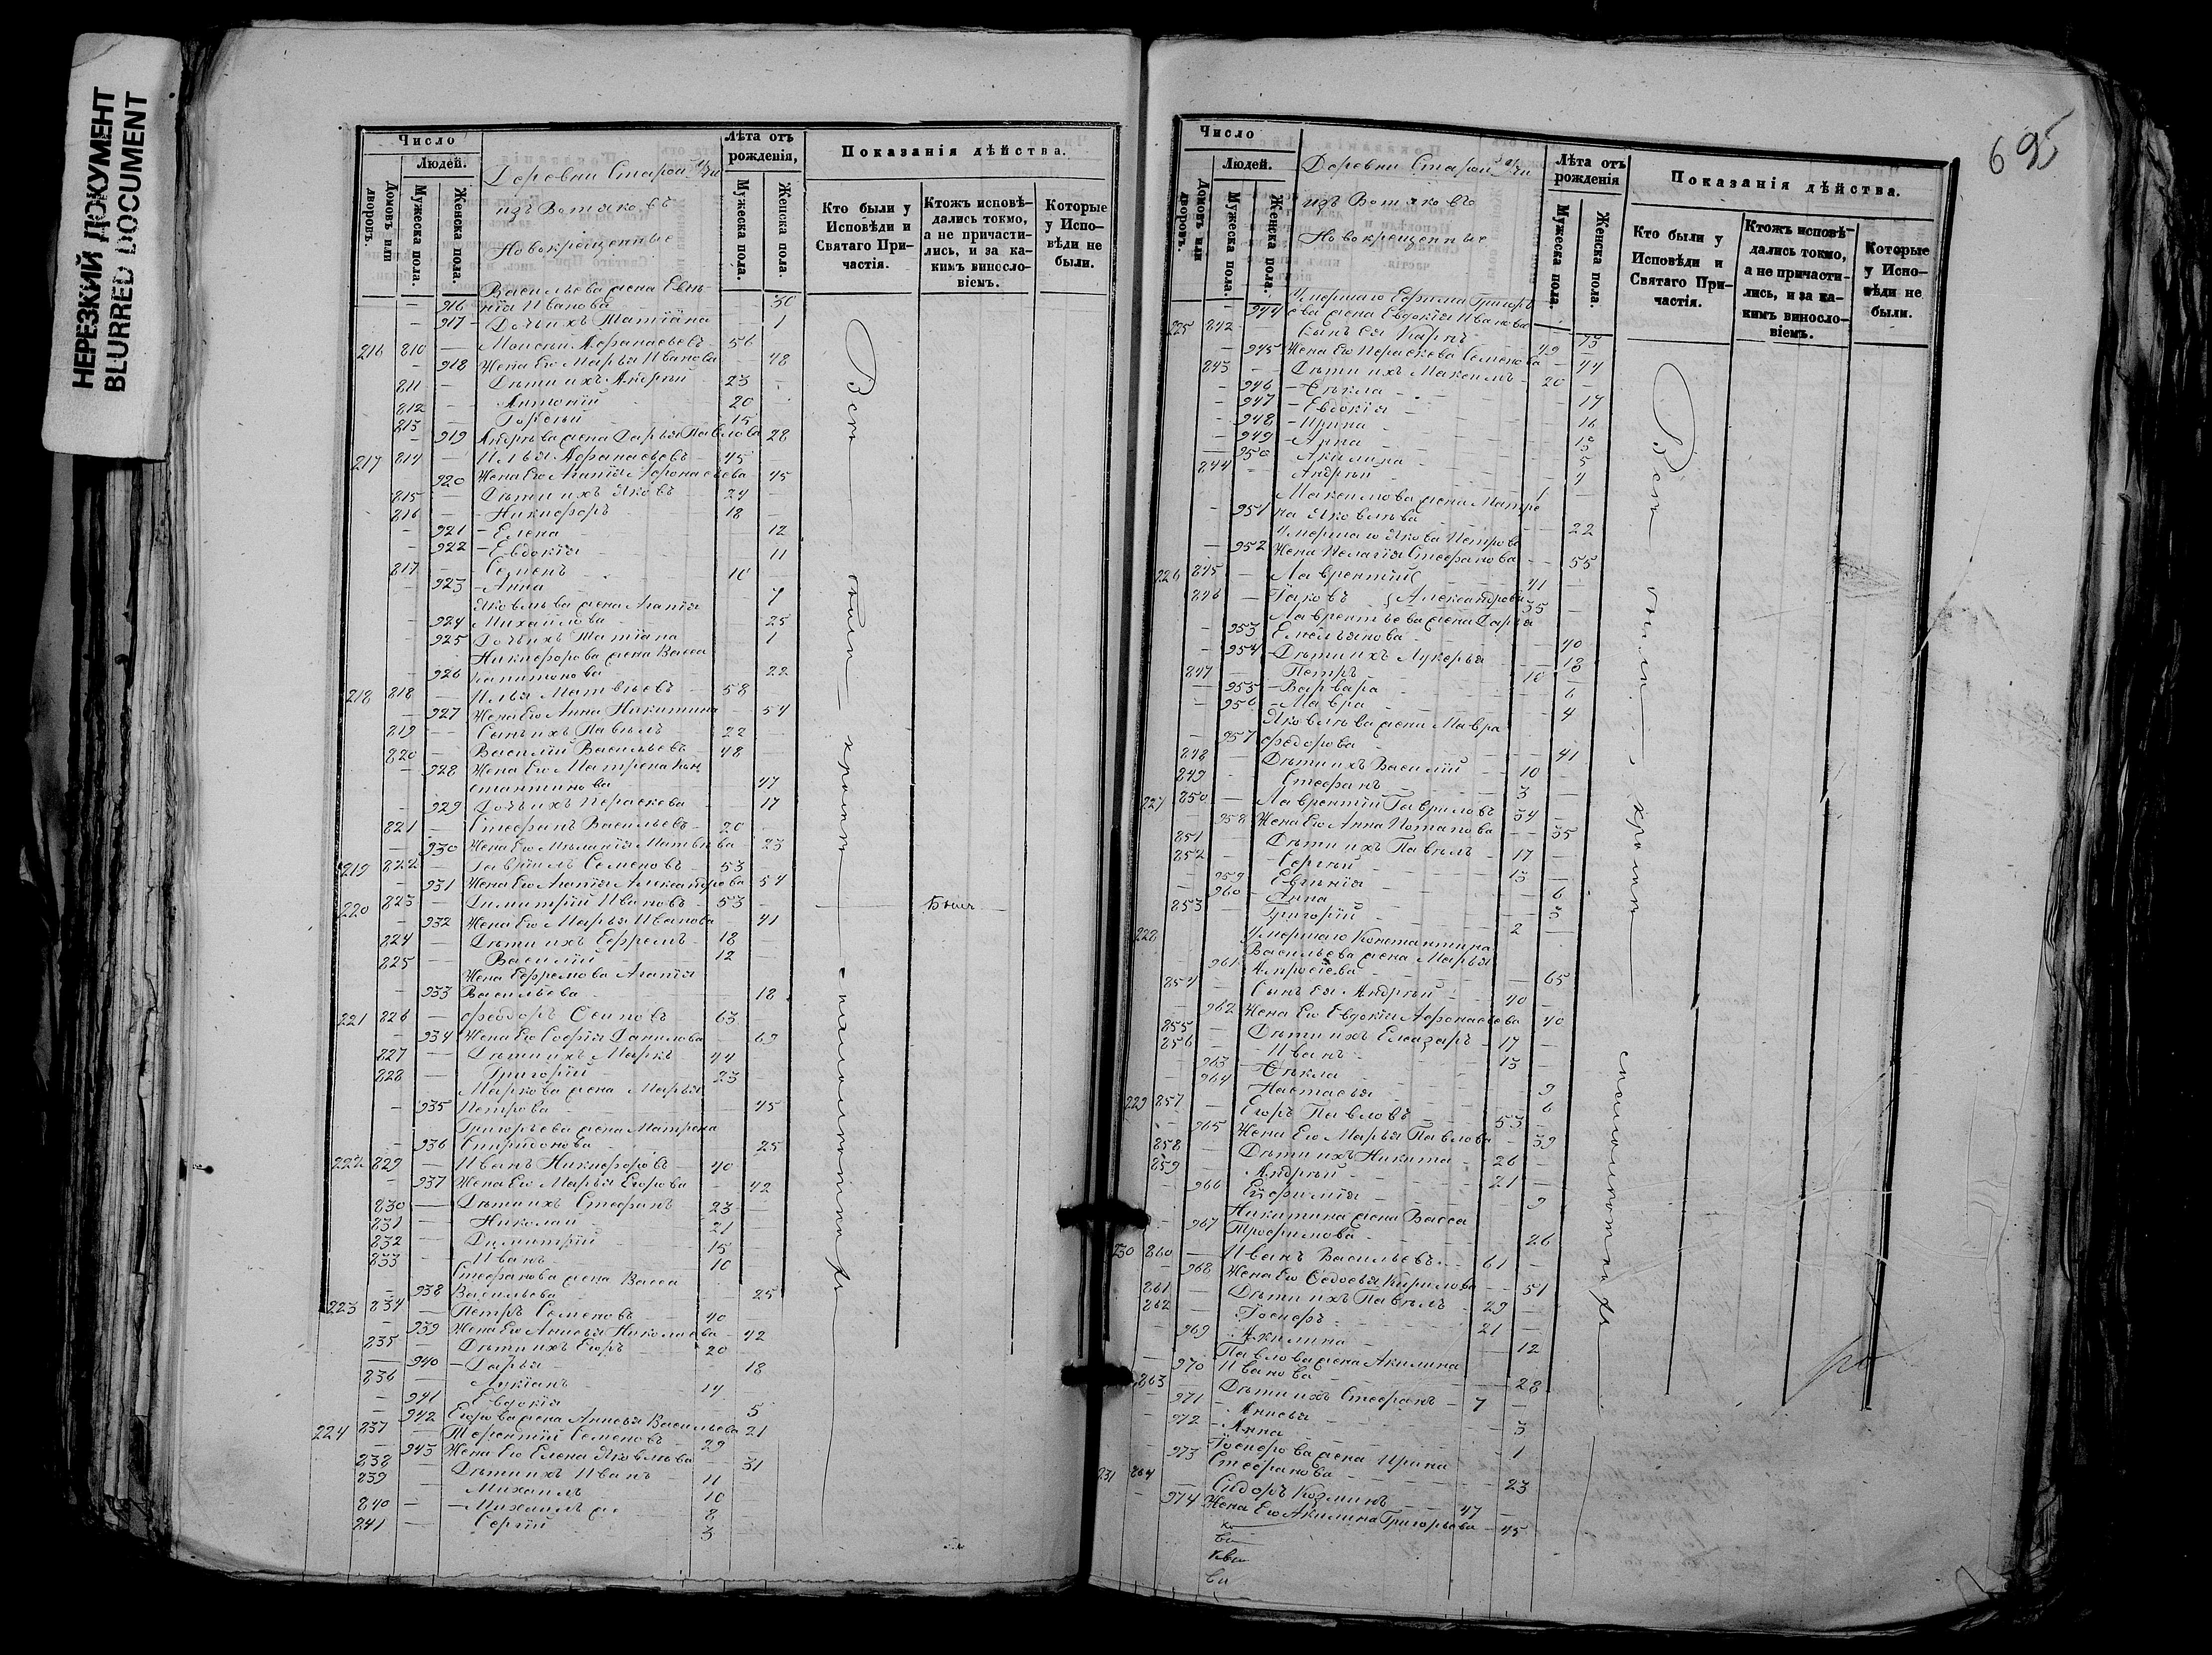 НЕРЕЗКИЙ ДОКУМЕНТ
BLURRED DOCUMENT
Число
Людей.
Домовъ или дворовъ.
Мужеска пола.
Женска пола.
Деревни Старой
изъ Вотяковъ
Новокрещенные
Лѣта отъ рожденія,
Мужеска пола.
Женска пола.
Показанія дѣйства.
Кто были у Исповѣди и Святаго Причастія.
Ктожъ исповѣдались токмо, а не причастились, и за какимъ винословіемъ.
Которые у Исповѣди не были.
Васильева жена Евге-
916 нія Иванова 30
917 Дочь ихъ Татіана 1
216 810 Моисей Афанасьевъ 56
918 Жена Его Марья Иванова 48
811 Дѣти ихъ Андрей 23
812 Антоній 20
813 Гордѣй 15
919 Андрѣева жена Дарья Павлова 28
217 814 Илья Афанасьевъ 45
920 Жена Его Агапія Афонасьева 45
815 Дѣти ихъ Яковъ 24
816 Никифоръ 18
921 Елена 12
922 Евдокія 11
817 Семенъ 10
923 Анна 7
Яковлева жена Агапія
924 Михайлова 25
925 Дочь ихъ Татіана 1
Никифорова жена Васса
926 Капитонова 22
218 818 Илья Матвѣевъ 58
927 Жена Его Анна Никитина 54
819 Сынъ ихъ Павелъ 22
820 Василій Васильевъ 48
928 Жена Его Матрена Кон
стантинова 47
929 Дочь ихъ Параскева 17
821 Стефанъ Васильевъ 20
930 Жена Его Меланія Матвѣева 23
219 822 Гавріилъ Семеновъ 53
931 Жена Его Агапія Александрова 54
220 823 Димитрій Ивановъ 53
932 Жена Его Марья Иванова 41
824 Дѣти ихъ Ефремъ 18
825 Василій 12
Жена Ефремова Агапія
933 Васильева 18
221 826 Феодоръ Осиповъ 63
934 Жена Его Софія Данилова 69
827 Дѣти ихъ Маркъ 44
828 Григорій 23
Маркова жена Марья
935 Петрова 45
Григорьева жена Матрена
936 Спиридонова 25
222 829 Иванъ Никифоровъ 40
937 Жена Его Марья Егорова 42
830 Дѣти ихъ Стефанъ 23
831 Николай 21
832 Димитрій 15
833 Иванъ 10
Стефанова жена Васса
938 Васильева 25
223 834 Петръ Семеновъ 40
939 Жена Его Анисья Николаева 42
835 Дѣти ихъ Егоръ 20
940 Дарья 18
836 Лукіанъ 14
941 Евдокія 5
942 Егорова жена Анисья Васильева 21
224 837 Терентій Семеновъ 29
943 Жена Его Елена Яковлева 31
838 Дѣти ихъ Иванъ 11
839 Михаилъ 10
840 Михаилъ 8
841 Сергій 3
Всѣ были кромѣ
695
Число
Людей.
Домовъ или дворовъ.
Мужеска пола.
Женска пола.
Деревни Старой
изъ Вотяковъ
Новокрещенные
Лѣта отъ рожденія
Мужеска пола.
Женска пола.
Показанія дѣйства.
Кто были у Исповѣди и Святаго Причастія.
Ктожъ исповѣдались токмо, а не причастились, и за какимъ винословіемъ.
Которые у Исповѣди не были.
Умершаго Ефима Григорь
944 ева жена Евдокія Иванова 73
225 842 Сынъ Ея Карпъ 49
945 Жена Его Параскева Семенова 44
843 Дѣти ихъ Максимъ 20
946 Фекла 17
947 Евдокія 16
948 Ирина 13
949 Анна 5
950 Акилина 4
844 Андрей 1
Максимова жена Матре
951 на Яковлева 22
Умершаго Якова Петрова
952 Жена Пелагія Стефанова 55
226 845 Лаврентій 41
846 Іаковъ } Александровы 35
Лаврентьева жена Дарья
953 Емельянова 40
954 Дѣти ихъ Лукерья 18
847 Петръ 10
955 Варвара 6
956 Мавра 4
Яковлева жена Мавра
957 Федорова 41
848 Дѣти ихъ Василій 10
849 Стефанъ 3
227 850 Лаврентій Гавриловъ 34
958 Жена Его Анна Потапова 35
851 Дѣти ихъ Павелъ 17
852 Сергѣй 13
959 Евгенія 6
960 Анна 3
853 Григорій 2
228 Умершаго Константина
Васильева жена Марья
961 Амросіева 65
854 Сынъ Ея Андрей 40
962 Жена Его Евдокія Афонасьева 40
855 Дѣти ихъ Елеазаръ 17
856 Иванъ 13
963 Фекла 9
964 Настасья 6
229 857 Егоръ Павловъ 53
965 Жена Его Марья Павлова 59
858 Дѣти ихъ Никита 26
859 Андрей 21
966 Евфимія 9
Никитина жена Васса
967 Трофимова 26
230 860 Иванъ Васильевъ 61
968 Жена Его Федосья Кирилова 51
861 Дѣти ихъ Павелъ 29
862 Іосифъ 21
969 Акилина 12
Павлова жена Акилина
970 Иванова 28
863 Дѣти ихъ Стефанъ 7
971 Анисья 3
972 Анна 1
Іосифова жена Ирина
973 Стефанова 23
231 864 Сидоръ Козминъ 47
974 Жена Его Акилина Григорьева 45
Всѣ были кромѣ